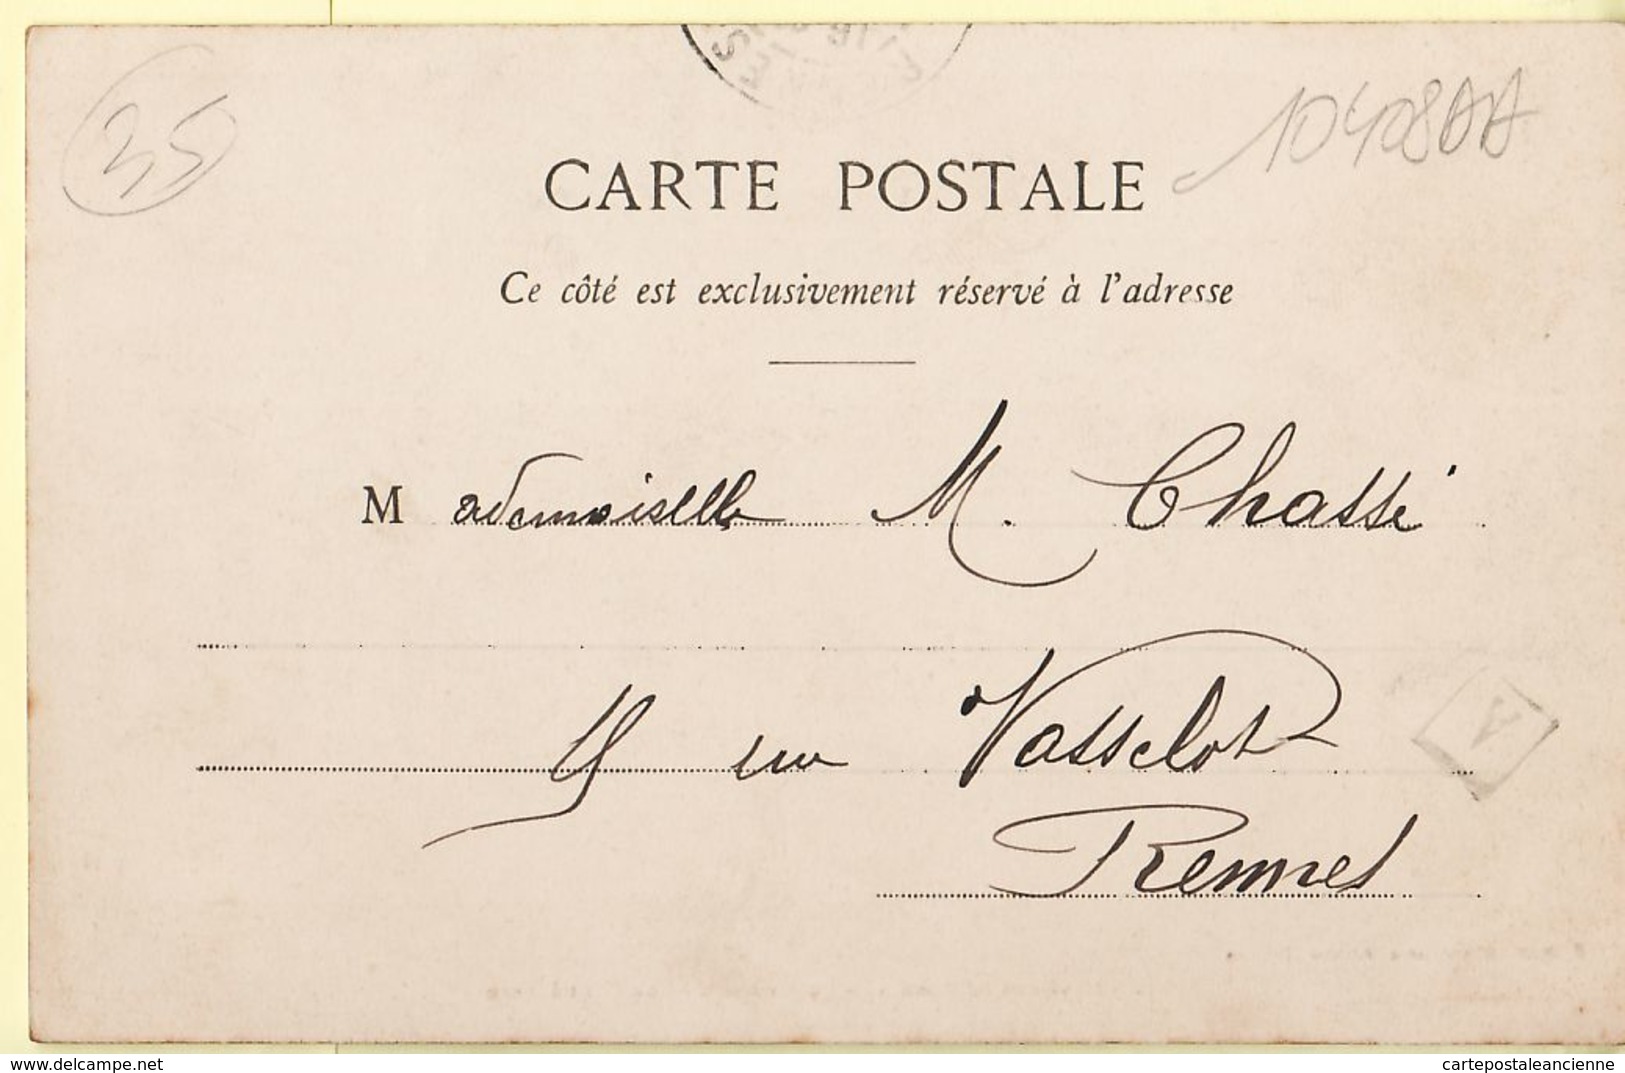 35
10408AA
CARTE POSTALE
Ce côté est exclusivement réservé à l'adresse
Mademoiselle M. Chassé
rue Vasselot
Rennes
A
delcampe.net
cartepostaleancienne